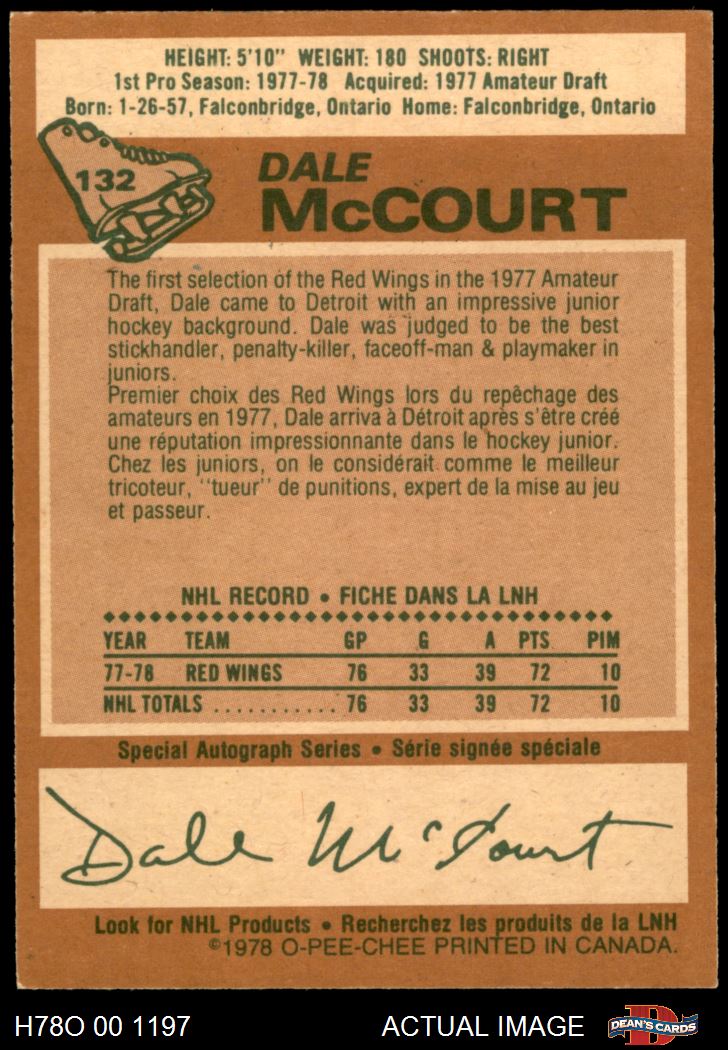 HEIGHT: 5'10" WEIGHT: 180 SHOOTS: RIGHT
1st Pro Season: 1977-78 Acquired: 1977 Amateur Draft
Born: 1-26-57, Falconbridge, Ontario Home: Falconbridge, Ontario
132
DALE
McCOURT
The first selection of the Red Wings in the 1977 Amateur
Draft, Dale came to Detroit with an impressive junior
hockey background. Dale was judged to be the best
stickhandler, penalty-killer, faceoff-man & playmaker in
juniors.
Premier choix des Red Wings lors du repêchage des
amateurs en 1977, Dale arriva à Détroit après s'être créé
une réputation impressionnante dans le hockey junior.
Chez les juniors, on le considérait comme le meilleur
tricoteur, "tueur" de punitions, expert de la mise au jeu
et passeur.
NHL RECORD • FICHE DANS LA LNH
YEAR TEAM GP G A PTS PIM
77-78 RED WINGS 76 33 39 72 10
NHL TOTALS ........... 76 33 39 72 10
Special Autograph Series • Série signée spéciale
Dale McCourt
Look for NHL Products • Recherchez les produits de la LNH
©1978 O-PEE-CHEE PRINTED IN CANADA.
H78O 00 1197 ACTUAL IMAGE DEAN'S CARDS